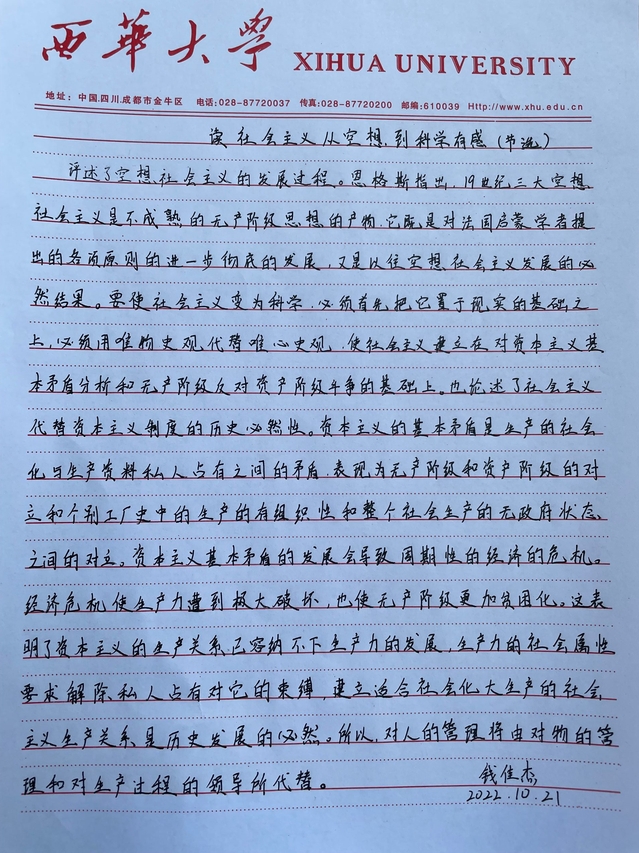 西華大學 XIHUA UNIVERSITY
地址：中国.四川.成都市金牛区 电话:028-87720037 传真:028-87720200 邮编:610039 Http://www.xhu.edu.cn
读社会主义从空想到科学有感(节选)
评述了空想社会主义的发展过程。恩格斯指出，19世纪三大空想
社会主义是不成熟的无产阶级思想的产物，它既是对法国启蒙学者提
出的各项原则的进一步彻底的发展，又是以往空想社会主义发展的必
然结果。要使社会主义变为科学，必须首先把它置于现实的基础之
上，必须用唯物史观代替唯心史观，使社会主义建立在对资本主义基
本矛盾分析和无产阶级反对资产阶级斗争的基础上。也论述了社会主义
代替资本主义制度的历史必然性。资本主义的基本矛盾是生产的社会
化与生产资料私人占有之间的矛盾，表现为无产阶级和资产阶级的对
立和个别工厂史中的生产的有组织性和整个社会生产的无政府状态
之间的对立。资本主义基本矛盾的发展会导致周期性的经济的危机。
经济危机使生产力遭到极大破坏，也使无产阶级更加贫困化。这表
明了资本主义的生产关系已容纳不下生产力的发展，生产力的社会属性
要求解除私人占有对它的束缚，建立适合社会化大生产的社会
主义生产关系是历史发展的必然。所以，对人的管理将由对物的管
理和对生产过程的领导所代替。
钱佳杰
2022.10.21